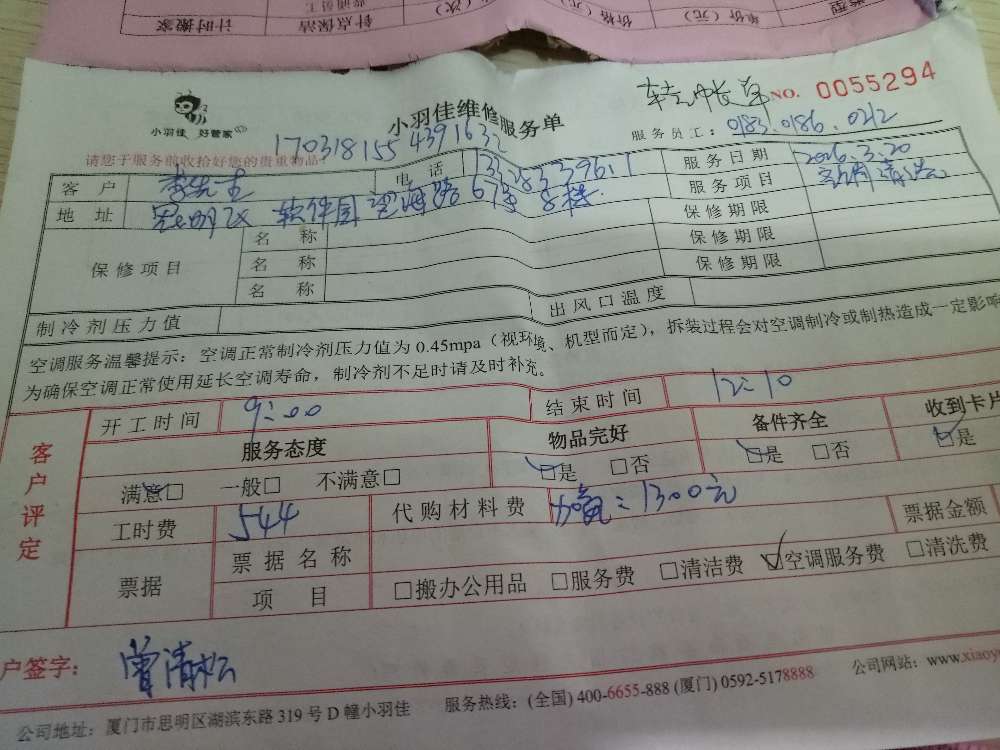 计时搬家 针点保洁 价格（元） （次） 单价（元） 类型
小羽佳 好管家
小羽佳维修服务单
NO. 0055294
170318155 4391632
服务员工：0183.0186.0212
请您于服务前收拾好您的贵重物品！
客 户 李先生 电 话 服务日期 2016.3.20
地 址 思明区 软件园望海路67号8楼 服务项目
保修项目 名 称 保修期限
名 称 保修期限
名 称 保修期限
制冷剂压力值 出风口温度
空调服务温馨提示：空调正常制冷剂压力值为 0.45mpa（视环境、机型而定），拆装过程会对空调制冷或制热造成一定影响
为确保空调正常使用延长空调寿命，制冷剂不足时请及时补充。
客户评定
开工时间 9:00 结束时间 12:10
服务态度 物品完好 备件齐全 收到卡片
满意□ 一般□ 不满意□ □是 □否 □是 □否 □是
工时费 544 代购材料费 加氟：1300元 票据金额
票据 票据名称
项 目 □搬办公用品 □服务费 □清洁费 ☑空调服务费 □清洗费
户签字：曾清松
公司地址：厦门市思明区湖滨东路 319 号 D 幢小羽佳 服务热线：(全国) 400-6655-888 (厦门) 0592-5178888 公司网站：www.xiaoy